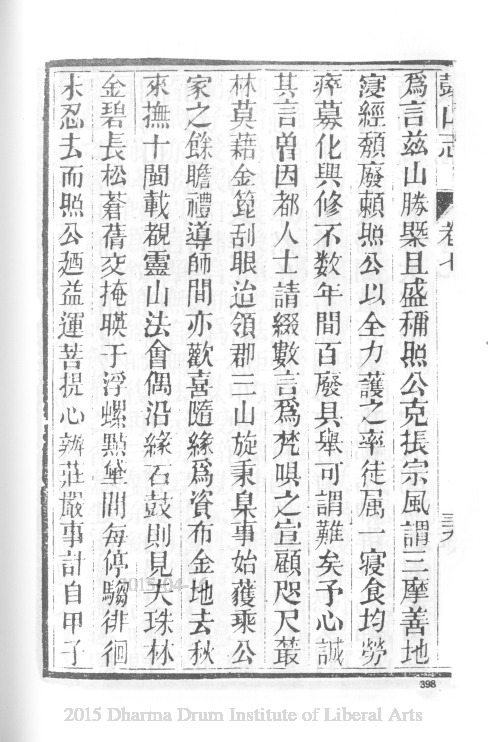 鼓山志
卷七
三九
為言茲山勝槩且盛稱照公克振宗風謂三摩善地
寖經頹廢賴照公以全力護之率徒属一寢食均勞
瘁募化興修不数年間百廢具舉可謂難矣予心誠
其言曽因都人士請綴數言為梵唄之宣顧咫尺叢
林莫藉金箆刮眼迨領郡三山旋秉臬事始獲乘公
家之餘瞻禮導師間亦歡喜隨緣為資布金地去秋
來撫十閩載覩靈山法會偶沿緣石鼓則見夫珠林
金碧長松蒼蒨交掩暎于浮螺點黛間每停騶徘徊
未忍去而照公廼益運菩提心辦莊嚴事計自甲子
2015-04-16
398
2015 Dharma Drum Institute of Liberal Arts